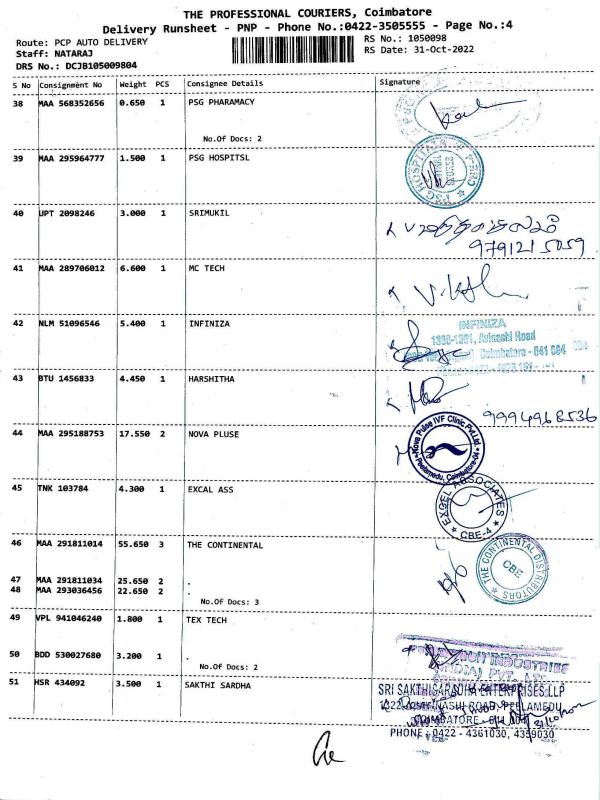 THE PROFESSIONAL COURIERS, Coimbatore
Delivery Runsheet - PNP - Phone No.:0422-3505555 - Page No.:4
Route: PCP AUTO DELIVERY RS No.: 1050098
Staff: NATARAJ RS Date: 31-Oct-2022
DRS No.: DCJB105009804
S No Consignment No Weight PCS Consignee Details Signature
38 MAA 568352656 0.650 1 PSG PHARAMACY
No.Of Docs: 2
39 MAA 295964777 1.500 1 PSG HOSPITSL
40 UPT 2098246 3.000 1 SRIMUKIL
9791215059
41 MAA 289706012 6.600 1 MC TECH
42 NLM 51096546 5.400 1 INFINIZA
INFINIZA
1390-1391, Avinashi Road
Coimbatore - 641 004
43 BTU 1456833 4.450 1 HARSHITHA
9994968536
44 MAA 295188753 17.550 2 NOVA PLUSE
Nova Pulse IVF Clinic Pvt.Ltd
Peelamedu, Coimbatore-04
45 TNK 103784 4.300 1 EXCAL ASS
EXCEL ASSOCIATES
CBE-4
46 MAA 291811014 55.650 3 THE CONTINENTAL
THE CONTINENTAL DISTRIBUTORS
CBE
47 MAA 291811034 25.650 2 .
48 MAA 293036456 22.650 2 .
No.Of Docs: 3
49 VPL 941046240 1.800 1 TEX TECH
50 BDD 530027680 3.200 1 .
No.Of Docs: 2
51 HSR 434092 3.500 1 SAKTHI SARDHA
SRI SAKTHI SARADHA ENTERPRISES LLP
AVINASHI ROAD, PEELAMEDU
COIMBATORE
PHONE : 0422 - 4361030, 4359030